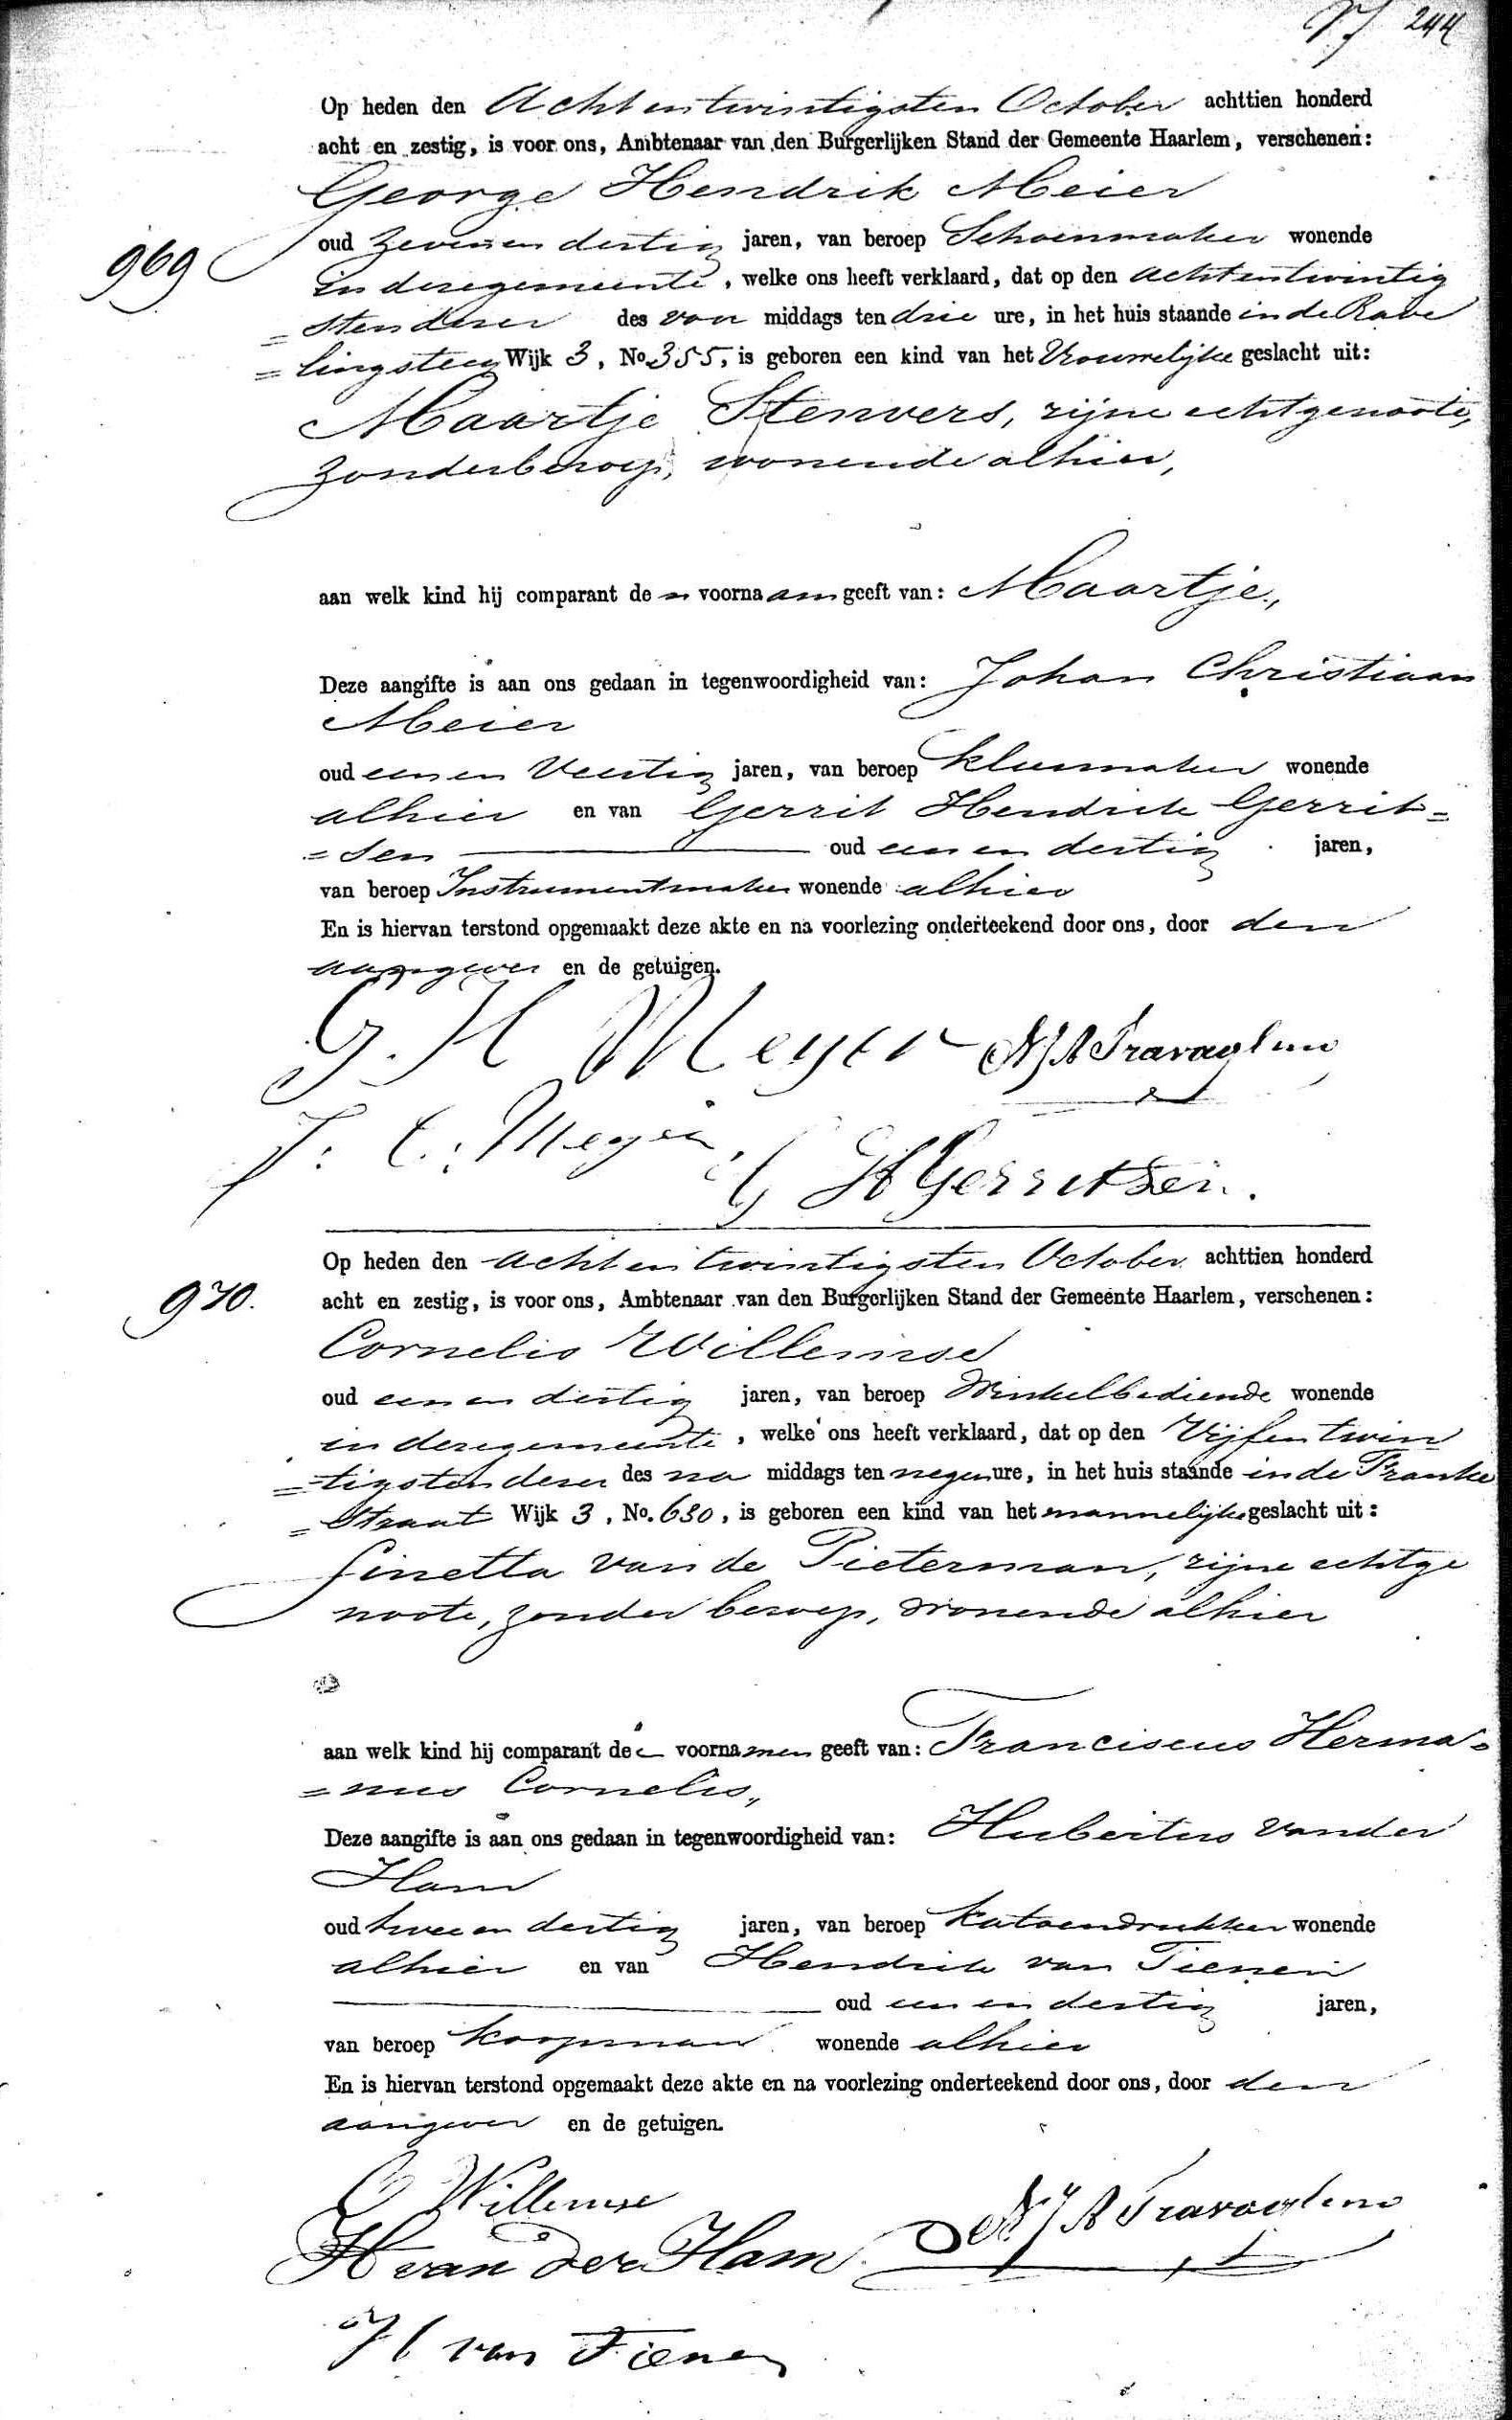 244
Op heden den Achtentwintigsten October achttien honderd
acht en zestig, is voor ons, Ambtenaar van den Burgerlijken Stand der Gemeente Haarlem, verschenen:
George Hendrik Meier
969
oud zevenendertig jaren, van beroep Schoenmaker wonende
in dezegemeente, welke ons heeft verklaard, dat op den achtentwintig
=sten dezer des voor middags ten drie ure, in het huis staande in de Rave
=lingsteeg Wijk 3, No. 355, is geboren een kind van het Vrouwelijke geslacht uit:
Maartje Stenvers, zijne echtgenoote,
zonder beroep, wonende alhier,
aan welk kind hij comparant de n voornaam geeft van: Maartje,
Deze aangifte is aan ons gedaan in tegenwoordigheid van: Johan Christiaan
Meier
oud eenen Veertig jaren, van beroep wonende
alhier en van Gerrit Hendrik Gerrit=
=sen oud eenen dertig jaren,
van beroep Instrumentmaker wonende alhier
En is hiervan terstond opgemaakt deze akte en na voorlezing onderteekend door ons, door den
aangever en de getuigen.
G. H Meyer NJA Travaglino
J: C: Meyer
G H Gerritsen.
Op heden den achtentwintigsten October achttien honderd
970.
acht en zestig, is voor ons, Ambtenaar van den Burgerlijken Stand der Gemeente Haarlem, verschenen:
Cornelis Willemse
oud eenen dertig jaren, van beroep Winkelbediende wonende
in dezegemeente, welke ons heeft verklaard, dat op den Vijfentwin
=tigsten dezer des na middags ten negen ure, in het huis staande in de Franke
=Straat Wijk 3, No. 630, is geboren een kind van het mannelijke geslacht uit:
Sinetta van de Pieterman, zijne echtge
noote, zonder beroep, wonende alhier
aan welk kind hij comparant de voornamen geeft van: Franciscus Herma=
=nus Cornelis,
Deze aangifte is aan ons gedaan in tegenwoordigheid van: Hubertus vander
Ham
oud tweeen dertig jaren, van beroep Katoendrukker wonende
alhier en van Hendrik van Tienen
oud eenen dertig jaren,
van beroep Koopman wonende alhier
En is hiervan terstond opgemaakt deze akte en na voorlezing onderteekend door ons, door den
aangever en de getuigen.
C Willemse
NJA Travaglino
H van der Ham
H van Tienen